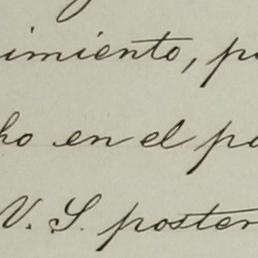 imiento, p
ho en el pa
V. S. poster